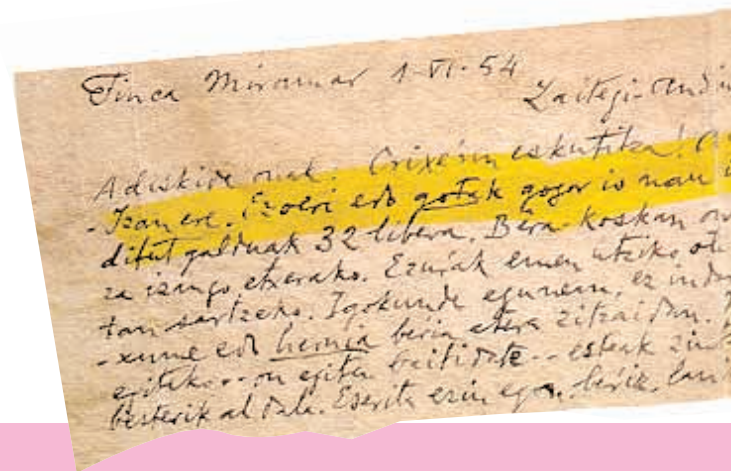 Finca Miramar 1-VI-54
Zaitegi-Andi
Adiskide onak: Orixe'ren eskutitza!
-Izan ere. Ezoeri edo gotak gogor jo nau
ditut galduak 32 libera. Bêra-koskan
za izango etxerako. Ezurak emen utziko
tan sartzeko. Igokunde egunean, ez
-xume edo hernia beria atera zitzaidan.
egiteko -- on egiten baitidate -- esteak
besterik al dala. Eserita ezin egon, berriz, lan